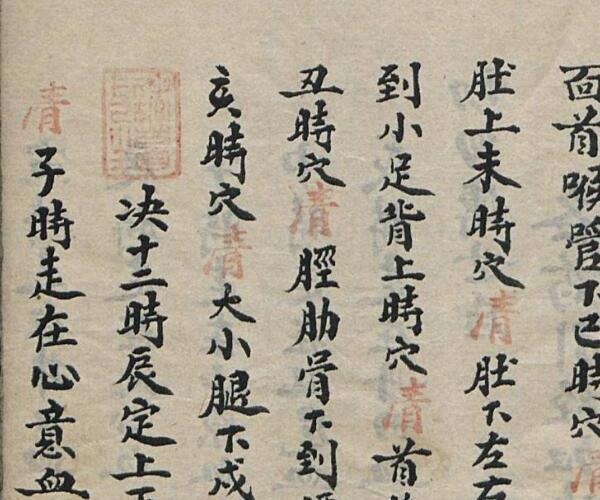 面首喉管下巳時穴清
肚上未時穴清肚下左右
到小足背上時穴清首
丑時穴清脛肋骨下到
亥時穴清大小腿下戍
决十二時辰定上下
清子時走在心意血